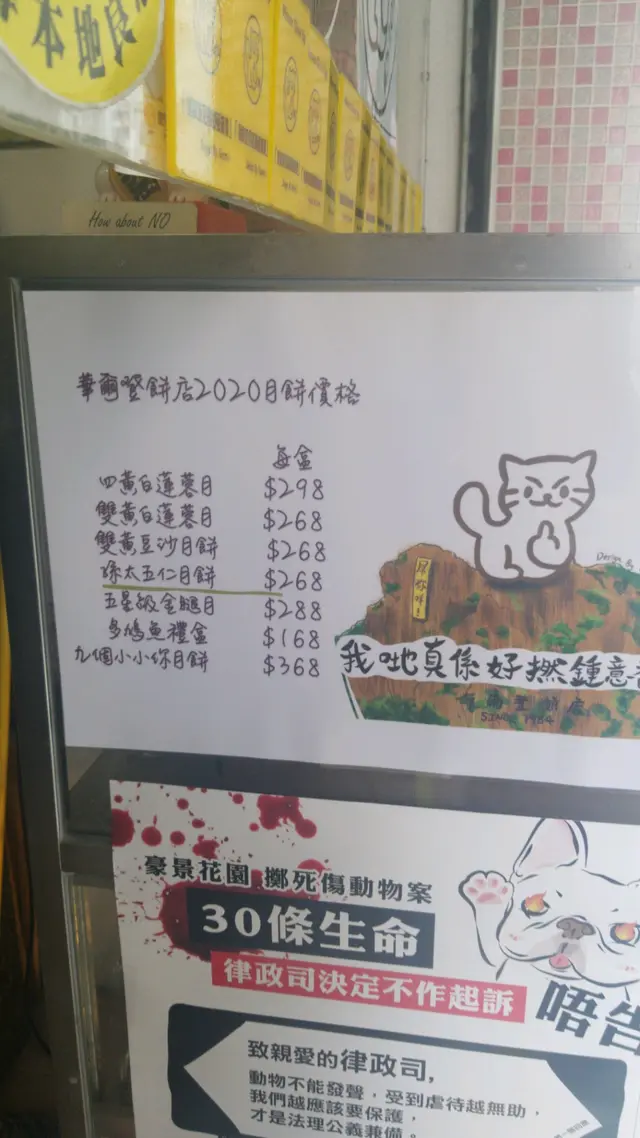 本地良
How about NO
華爾登餅店2020月餅價格
每盒
四黃白蓮蓉月 $298
雙黃白蓮蓉月 $268
雙黃豆沙月餅 $268
孫太五仁月餅 $268
五星級金腿月 $288
多鳩魚禮盒 $168
九個小小你月餅 $368
我哋真係好撚鍾意香
SINCE 1984
豪景花園 擲死傷動物案
30條生命
律政司決定不作起訴
唔告
致親愛的律政司,
動物不能發聲,受到虐待越無助,
我們越應該要保護,
才是法理公義兼備。